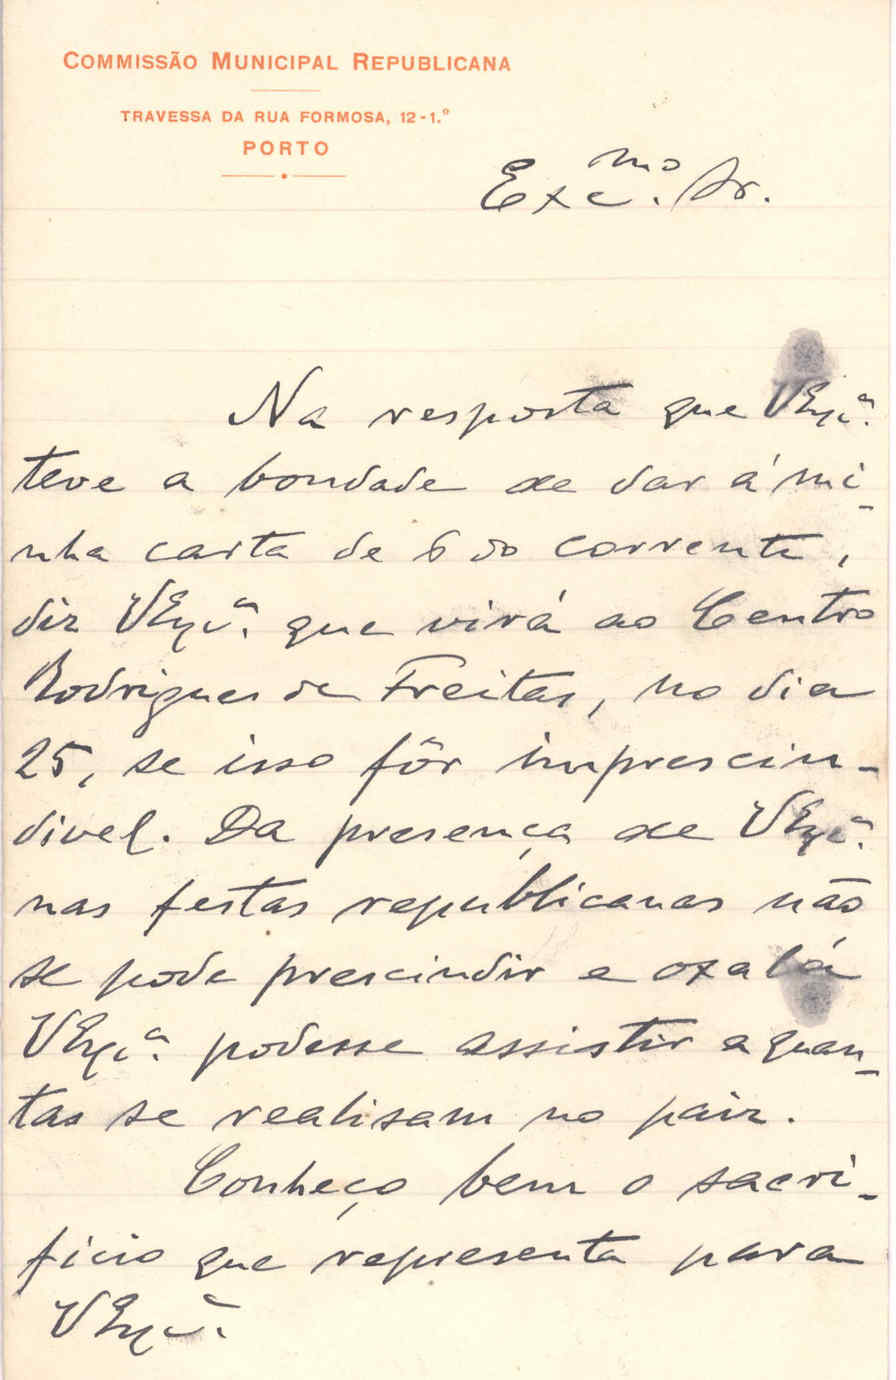 COMMISSÃO MUNICIPAL REPUBLICANA
TRAVESSA DA RUA FORMOSA, 12-1.º
PORTO
Exc.mo Sr.
Na resposta que VExcª.
teve a bondade de dar á mi-
nha carta de 6 do corrente,
diz VExcª. que virá ao Centro
Rodrigues de Freitas, no dia
25, se isso fôr imprescin-
divel. Da presença de VExcª.
nas festas republicanas não
se pode prescindir e oxalá
VExcª. podesse assistir a quan-
tas se realisam no paiz.
Conheço bem o sacri-
ficio que representa para
VExcª.